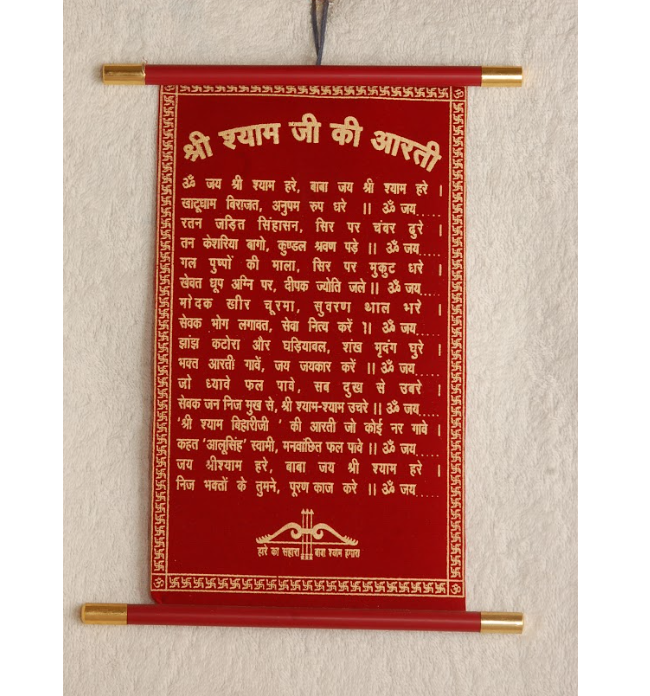 श्री श्याम जी की आरती
ॐ जय श्री श्याम हरे, बाबा जय श्री श्याम हरे ।
खाटूधाम विराजत, अनुपम रुप धरे ।। ॐ जय.....
रतन जड़ित सिंहासन, सिर पर चंवर ढुरे ।
तन केशरिया बागो, कुण्डल श्रवण पड़े ।। ॐ जय.....
गल पुष्पों की माला, सिर पर मुकुट धरे ।
खेवत धूप अग्नि पर, दीपक ज्योति जले ।। ॐ जय.....
मोदक खीर चूरमा, सुवरण थाल भरे ।
सेवक भोग लगावत, सेवा नित्य करें ।। ॐ जय.....
झांझ कटोरा और घड़ियावल, शंख मृदंग घुरे ।
भक्त आरती गावें, जय जयकार करें ।। ॐ जय.....
जो ध्यावे फल पावे, सब दुख से उबरे ।
सेवक जन निज मुख से, श्री श्याम-श्याम उचरे ।। ॐ जय.....
'श्री श्याम बिहारीजी ' की आरती जो कोई नर गावे ।
कहत 'आलूसिंह' स्वामी, मनवांछित फल पावे ।। ॐ जय.....
जय श्रीश्याम हरे, बाबा जय श्री श्याम हरे ।
निज भक्तों के तुमने, पूरण काज करे ।। ॐ जय.....
हारे का सहारा बाबा श्याम हमारा